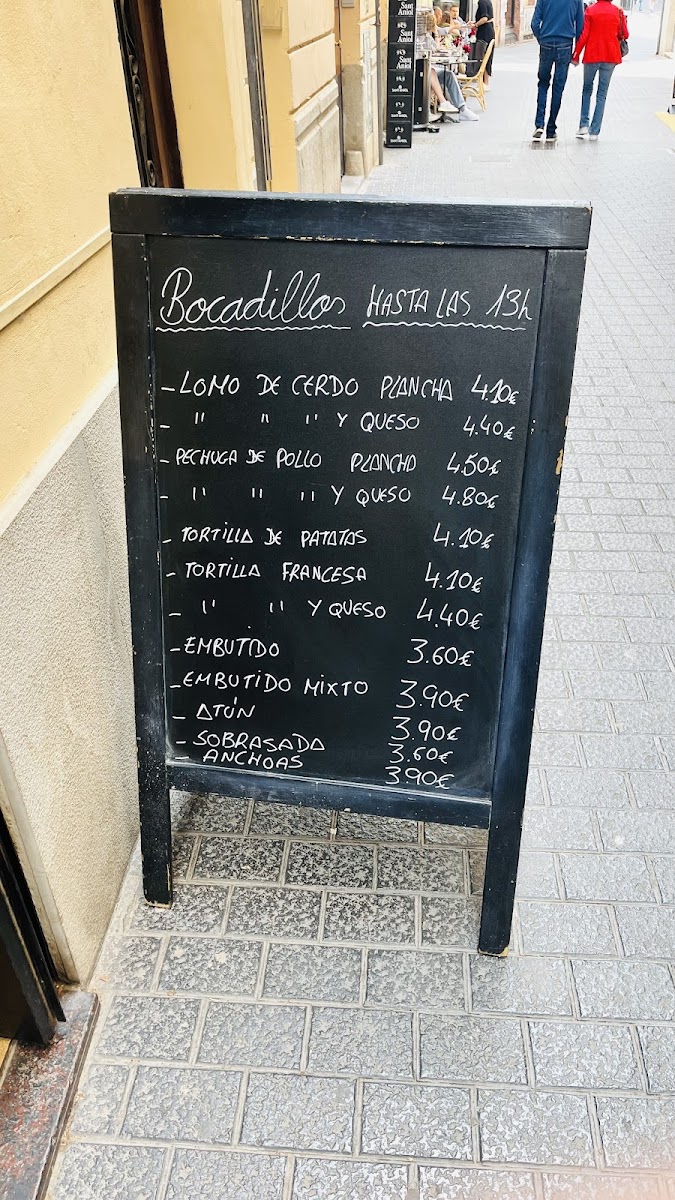 Sant
Aniol
Sant
Aniol
Bocadillos HASTA LAS 13h
- LOMO DE CERDO PLANCHA 4.10€
- " " " Y QUESO 4.40€
- PECHUGA DE POLLO PLANCHA 4.50€
- " " " Y QUESO 4.80€
- TORTILLA DE PATATAS 4.10€
- TORTILLA FRANCESA 4.10€
- " " Y QUESO 4.40€
- EMBUTIDO 3.60€
- EMBUTIDO MIXTO 3.90€
- ATÚN 3.90€
- SOBRASADA 3.60€
- ANCHOAS 3.90€